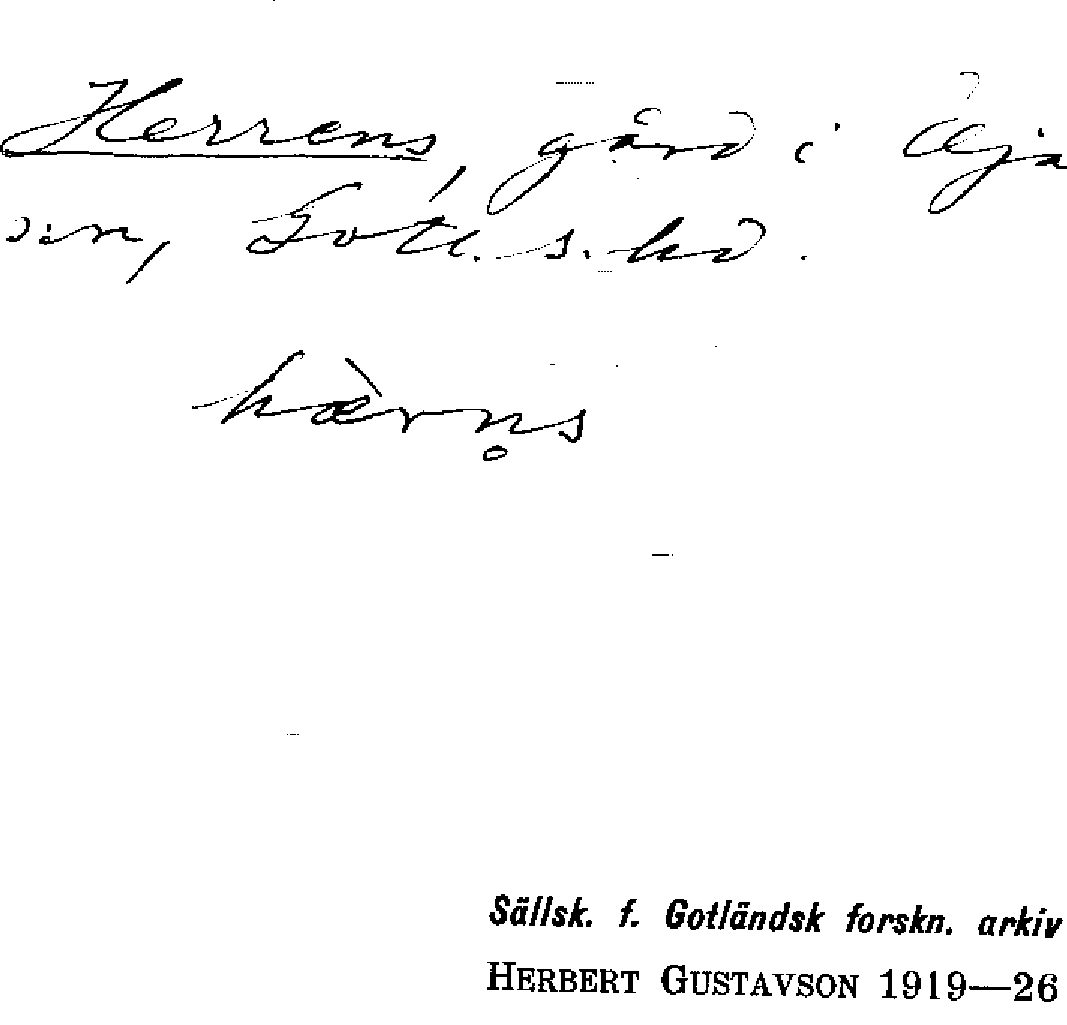 Herrens, gård i Öja
s:n, Gotl. s. hd.
hæ̀rn̥s
Sällsk. f. Gotländsk forskn. arkiv
HERBERT GUSTAVSON 1919—26